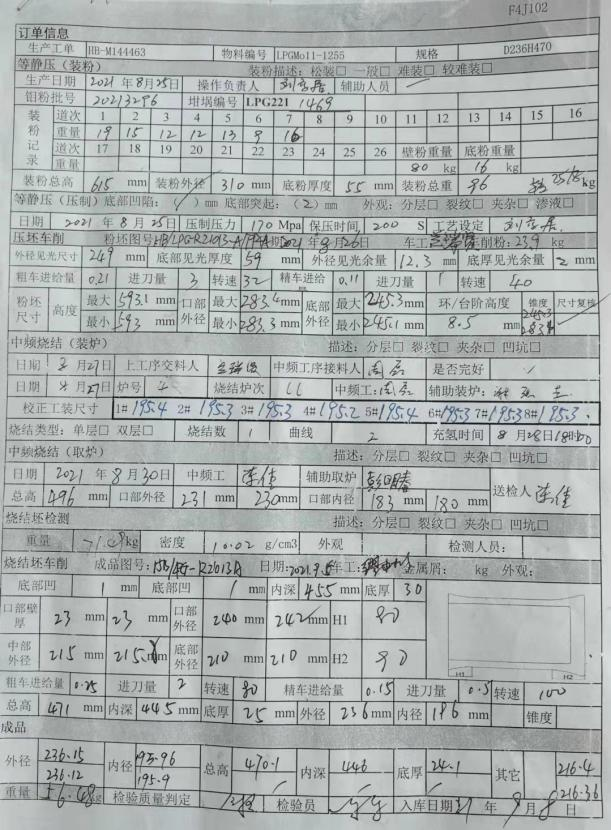 F4J102
订单信息
生产工单 HB-M144463 物料编号 LPGMo11-1255 规格 D236H470
等静压（装粉） 装粉描述：松装□ 一般□ 难装□ 较难装□
生产日期 2021年8月25日 操作负责人 辅助人员
钼粉批号 20213296 坩埚编号 LPG221 1469
装粉记录 道次 1 2 3 4 5 6 7 8 9 10 11 12 13 14 15 16
重量 19 15 12 12 13 9 16
道次 17 18 19 20 21 22 23 24 25 26 壁粉重量 底粉重量
重量 80 kg 16 kg
装粉总高 615 mm 装粉外径 310 mm 底粉厚度 55 mm 装粉总重 96 kg
等静压（压制）底部凹陷：（ ）mm 底部突起：（2）mm 外观：分层□ 裂纹□ 夹杂□ 渗液□
日期 2021年8月25日 压制压力 170 Mpa 保压时间 200 S 工艺设定
压坯车削 粉坯图号 日期2021年8月26日 车工 车削粉：23.9 kg
外径见光尺寸 249 mm 底部见光厚度 59 mm 外径见光余量 12.3 mm 底厚见光余量 2 mm
粗车进给量 0.21 进刀量 3 转速 32 精车进给量 0.11 进刀量 1 转速 40
粉坯尺寸 高度 最大 593.1 mm 口部外径 最大 283.4 mm 底部外径 最大 245.3 mm 环/台阶高度 锥度 尺寸复核
最小 593 mm 最小 283.3 mm 最小 245.1 mm 8.5 mm
中频烧结（装炉） 描述：分层□ 裂纹□ 夹杂□ 凹坑□
日期 月27日 上工序交料人 中频工序接料人 周磊 是否完好 ✓
日期 月27日 炉号 4 烧结炉次 中频工：周磊 辅助装炉：
校正工装尺寸 1# 195.4 2# 195.3 3# 195.3 4# 195.2 5# 195.4 6# 195.3 7# 195.3 8# 195.3
烧结类型：单层□ 双层□ 烧结数 1 曲线 2 充氢时间 8月28日
中频烧结（取炉） 描述：分层□ 裂纹□ 夹杂□ 凹坑□
日期 2021年8月30日 中频工 辅助取炉 送检人
总高 496 mm 口部外径 231 mm 230 mm 口部内径 183 mm 180 mm
烧结坯检测 描述：分层□ 裂纹□ 夹杂□ 凹坑□
重量 kg 密度 10.02 g/cm3 外观 检测人员：
烧结坯车削 成品图号： 日期：2021.9.5 车工： 金属屑： kg 外观：
底部凹 1 mm 底部凹 1 mm 内深 455 mm 底厚 30
口部壁厚 23 mm 23 mm 口部外径 240 mm 242 mm H1 80
中部外径 215 mm 215 mm 底部外径 210 mm 210 mm H2 90
H1 H2
粗车进给量 0.25 进刀量 2 转速 80 精车进给量 0.15 进刀量 0.5 转速 100
总高 471 mm 内深 445 mm 底厚 25 mm 外径 236 mm 内径 196 mm 锥度
成品
外径 236.15 内径 195.96 总高 470.1 内深 446 底厚 24.1 其它 216.4
236.12 195.9 216.36
重量 56.48 kg 检验质量判定 检验员 入库日期 21年9月8日